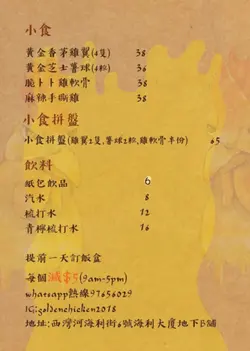 小食
黃金香茅雞翼(4隻) 38
黃金芝士薯球(4粒) 36
脆卜卜雞軟骨 38
麻辣手撕雞 38
小食拼盤
小食拼盤(雞翼2隻,薯球2粒,雞軟骨半份) 65
飲料
紙包飲品 6
汽水 8
梳打水 12
青檸梳打水 16
提前一天訂飯盒
每個減$5(9am-5pm)
whatsapp熱線97656029
IG:goldenchicken2018
地址:西灣河海利街6號海利大廈地下B舖